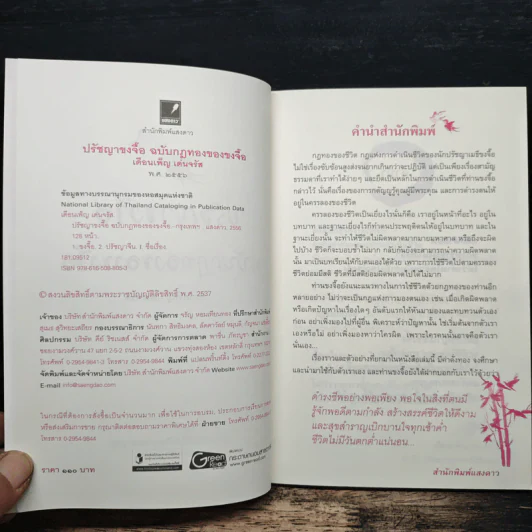 สำนักพิมพ์แสงดาว
ปรัชญาขงจื้อ ฉบับกฎทองของขงจื้อ
เดือนเพ็ญ เด่นจรัส
พ.ศ. ๒๕๕๖
ข้อมูลทางบรรณานุกรมของหอสมุดแห่งชาติ
National Library of Thailand Cataloging in Publication Data
เดือนเพ็ญ เด่นจรัส.
ปรัชญาขงจื้อ ฉบับกฎทองของขงจื้อ.-กรุงเทพฯ : แสงดาว, 2556
128 หน้า.
1.ขงจื้อ. 2. ปรัชญาจีน I. ชื่อเรื่อง
181.09512
© สงวนลิขสิทธิ์ตามพระราชบัญญัติลิขสิทธิ์ พ.ศ. 2537
เจ้าของ บริษัท สำนักพิมพ์แสงดาว จำกัด ผู้จัดการ จรัญ หอมเทียนทอง ที่ปรึกษาสำนักพิมพ์
E-mail info@saengdao.com
ในกรณีที่ต้องการสั่งซื้อเป็นจำนวนมาก เพื่อใช้ในการอบรม
โทรสาร 0-2954-9844
ราคา ๑๑๐ บาท
Green
คำนำสำนักพิมพ์
กฎทองของชีวิต กฎแห่งการดำเนินชีวิตของนักปรัชญาเมธีขงจื้อ
ไม่ใช่เรื่องซับซ้อนสูงส่งยากเกินกว่าจะปฏิบัติ แต่เป็นเพียงเรื่องสามัญ
ธรรมดาที่เราทำได้ง่ายๆ และถือเป็นหลักในการดำเนินชีวิตที่ท่านขงจื้อ
กล่าวไว้ นั่นคือเรื่องของการกตัญญูรู้คุณผู้มีพระคุณ และการดำรงตนให้
อยู่ในครรลองของชีวิต
ครรลองของชีวิตเป็นเยี่ยงไรนั้นก็คือ เราอยู่ในหน้าที่อะไร อยู่ใน
บทบาท และฐานะเยี่ยงไรก็ทำตนประพฤติตนให้อยู่ในบทบาท และใน
ฐานะเยี่ยงนั้น จะทำให้ชีวิตไม่ผิดพลาดมากมายมหาศาล หรือถึงจะผิด
ไปบ้าง ชีวิตก็จะบอบช้ำไม่มาก กลับกันถึงจะสามารถนำความผิดพลาด
นั้น มาเป็นบทเรียนให้กับตนเองได้ด้วย เพราะการใช้ชีวิตไปตามครรลอง
ชีวิตย่อมมีสติ ชีวิตที่มีสติย่อมผิดพลาดไปได้ไม่มาก
ท่านขงจื้อยังแนะแนวทางในการใช้ชีวิตด้วยกฎทองของท่านอีก
หลายอย่าง ไม่ว่าจะเป็นกฎแห่งการมองตนเอง เช่น เมื่อเกิดผิดพลาด
หรือเกิดปัญหาในเรื่องใดๆ อันดับแรกให้หันมามองและทบทวนตัวเอง
ก่อน อย่าเพิ่งมองไปที่ผู้อื่น พิเคราะห์ว่าปัญหานั้น ใช่เริ่มต้นจากตัวเรา
เองหรือไม่ อย่าเพิ่งมองหาว่าใครผิด เพราะใครคนนั้นอาจคือตัวเรา
นี้เอง...
เรื่องราวและตัวอย่างที่ยกมาในหนังสือเล่มนี้ มีค่าทั้งหมด จงศึกษา
และนำมาใช้กับตัวเราเอง และท่านขงจื้อยังได้ฝากบอกกับเราไว้ด้วยว่า
ดำรงชีพอย่างพอเพียง พอใจในสิ่งที่ตนมี
รู้จักพอดีตามกำลัง สร้างสรรค์ชีวิตให้ดีงาม
และสุขสำราญเบิกบานใจทุกเช้าค่ำ
ชีวิตไม่มีวันตกต่ำแน่นอน...
สำนักพิมพ์แสงดาว